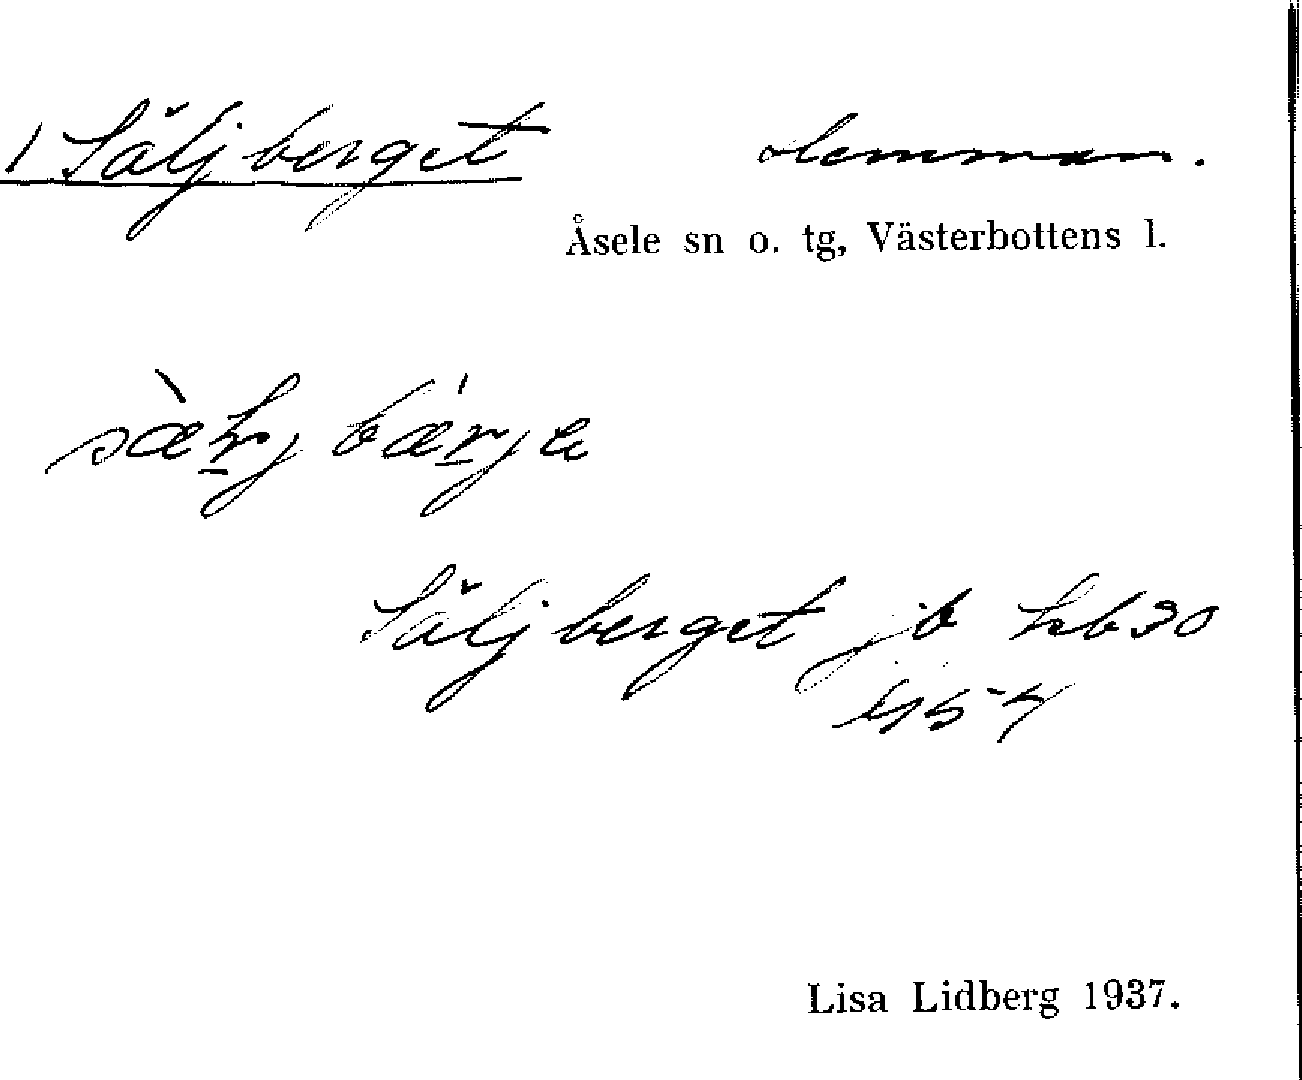 1 Säljberget Hemman.
Åsele sn o. tg, Västerbottens l.
Säljberget jb hb 30
Lisa Lidberg 1937.